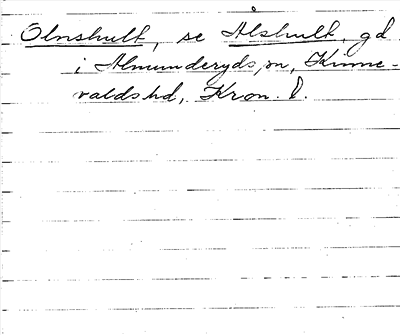 Olnshult, se Ålshult, gd
i Almunderyds sn, Kinne-
valds hd, Kron. l.